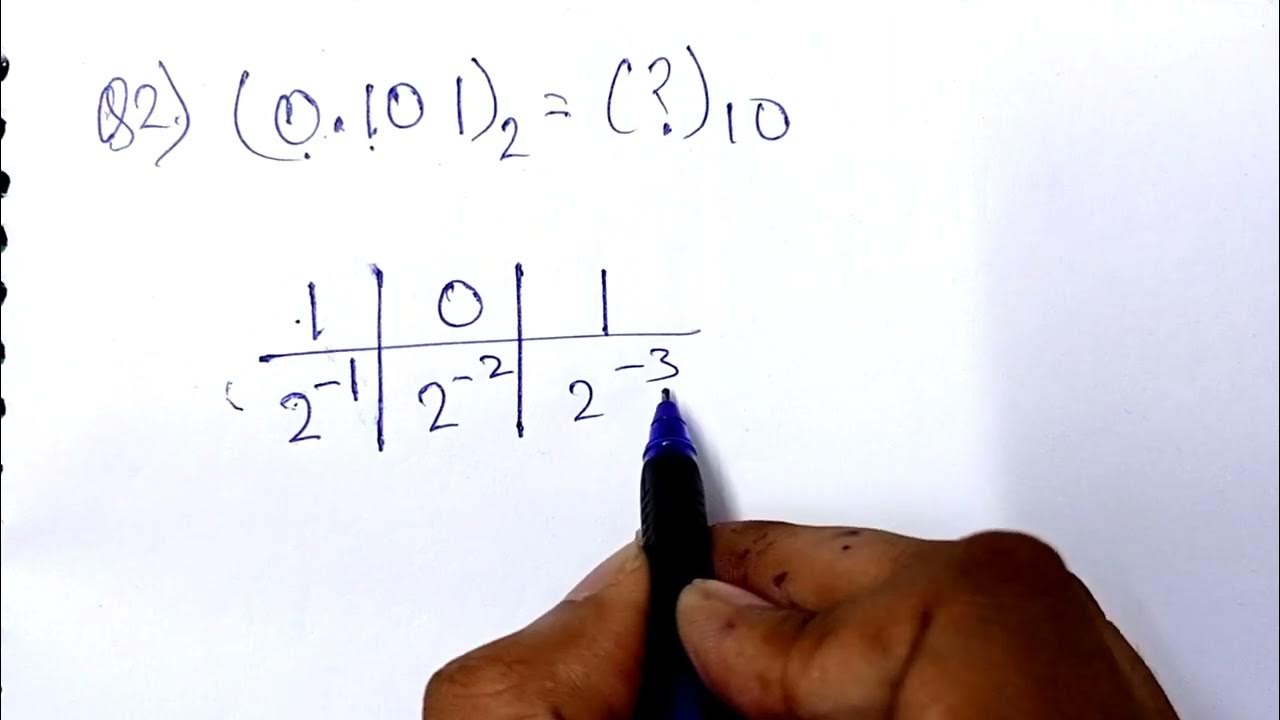 Q2) (0.101)₂ = (?)₁₀
1 | 0 | 1
2⁻¹ | 2⁻² | 2⁻³